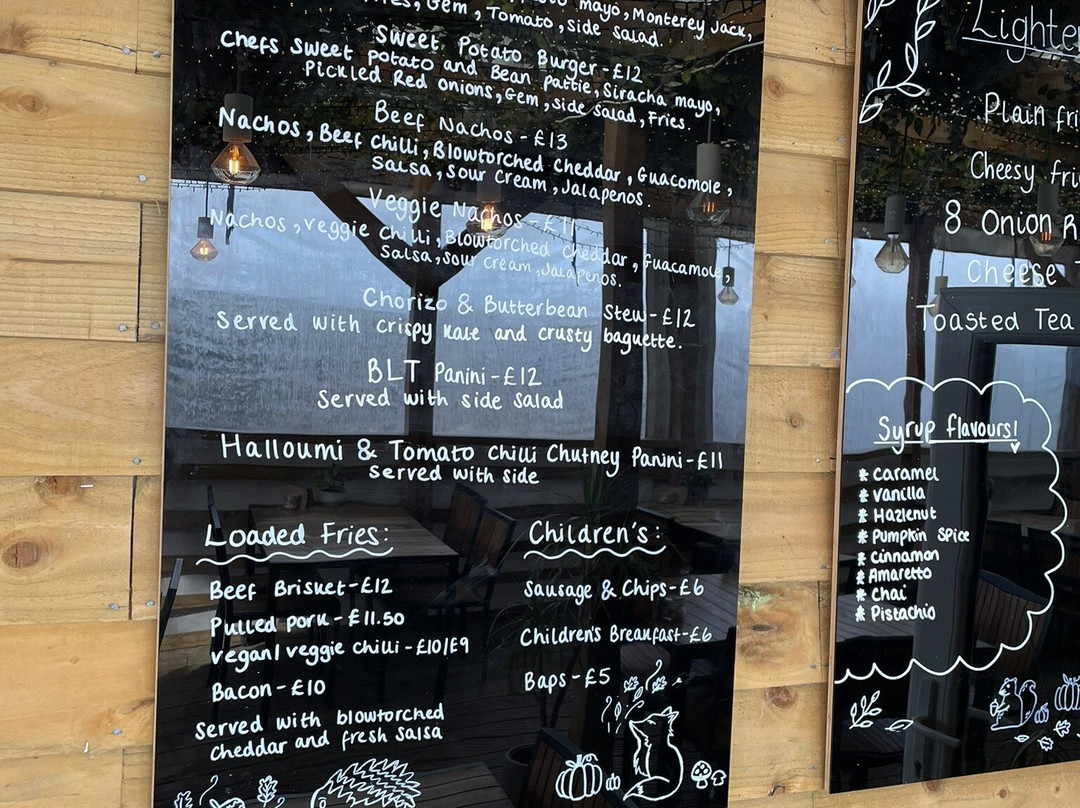 mayo, Monterey Jack,
Gem, Tomato, side salad.
Sweet Potato Burger - £12
Chefs sweet potato and Bean pattie, Siracha mayo,
Pickled Red onions, Gem, side salad, Fries.
Beef Nachos - £13
Nachos, Beef Chilli, Blowtorched Cheddar, Guacomole,
Salsa, sour Cream, Jalapenos.
Veggie Nachos - £11
Nachos, veggie chilli, Blowtorched cheddar, Guacamole,
Salsa, sour cream, Jalapenos.
Chorizo & Butterbean Stew - £12
Served with crispy kale and crusty baguette.
BLT Panini - £12
Served with side salad
Halloumi & Tomato chilli Chutney Panini - £11
served with side
Loaded Fries:
Beef Brisket - £12
Pulled pork - £11.50
vegan/veggie chilli - £10/£9
Bacon - £10
Served with blowtorched
cheddar and fresh salsa
Children's:
Sausage & Chips - £6
Children's Breakfast - £6
Baps - £5
Plain
Cheesy
8 Onion
Cheese
Toasted Tea
Syrup flavours!
* Caramel
* Vanilla
* Hazlenut
* Pumpkin Spice
* Cinnamon
* Amaretto
* Chai
* Pistachio